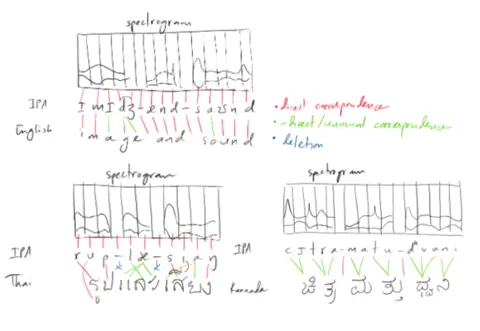 spectrogram
IPA ɪmɪdʒ-ænd-saʊnd
English image and sound
• direct correspondence
• indirect/unusual correspondence
• deletion
spectrogram
IPA rup-lɛ-siaŋ
Thai รูปและเสียง
spectrogram
IPA cɪtra-matu-dvani
Kannada ಚಿತ್ರ ಮತ್ತು ಧ್ವನಿ